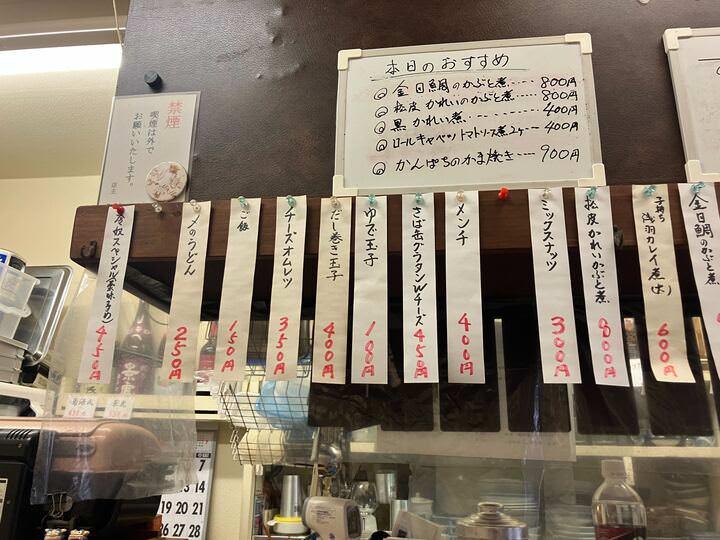 本日のおすすめ
金目鯛のかぶと煮……800円
松皮かれいのかぶと煮……800円
黒かれい煮……400円
ロールキャベツトマトソース煮2ヶ…400円
かんぱちのかま焼き……900円
禁煙
喫煙は外で
お願いいたします。
店主
冷奴スペシャル(薬味多め)
450円
〆のうどん
250円
ご飯
150円
チーズオムレツ
350円
だし巻き玉子
400円
ゆで玉子
100円
さば缶グラタンWチーズ
450円
メンチ
400円
ミックスナッツ
300円
松皮かれいかぶと煮
800円
子持ち
浅羽カレイ煮(大)
600円
金目鯛のかぶと煮
7
14
19 20 21
26 27 28